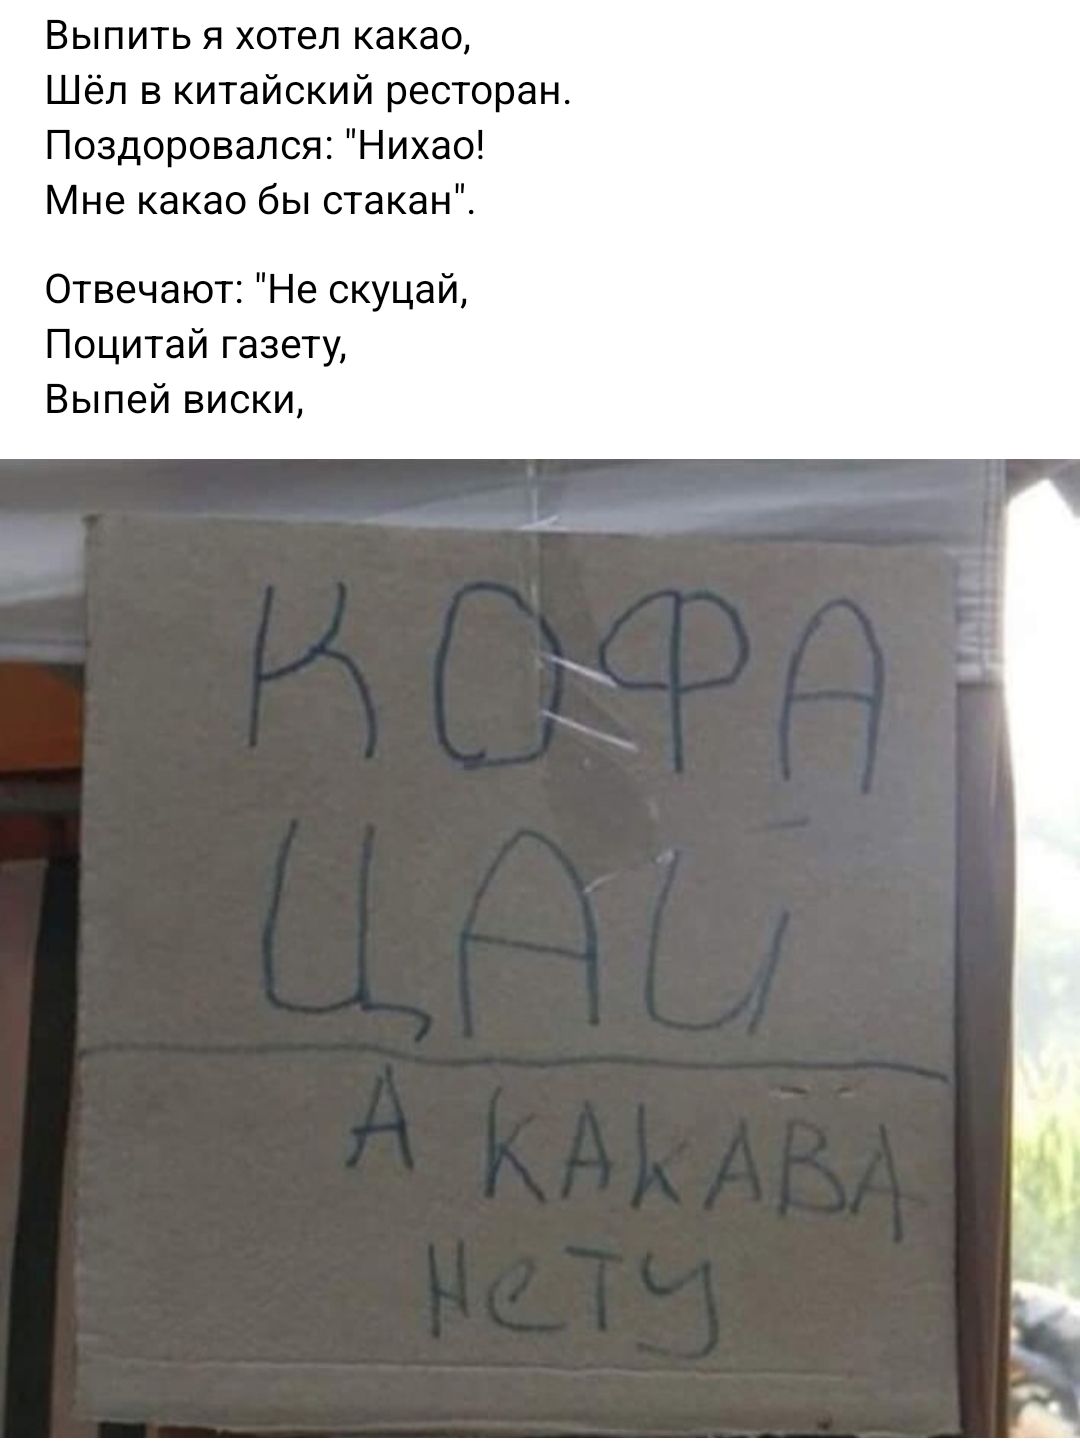 Выпить я хотел какао,
Шёл в китайский ресторан.
Поздоровался: "Нихао!
Мне какао бы стакан".
Отвечают: "Не скуцай,
Поцитай газету,
Выпей виски,
КОФА
ЦАЙ
А КАКАВА
НеТУ